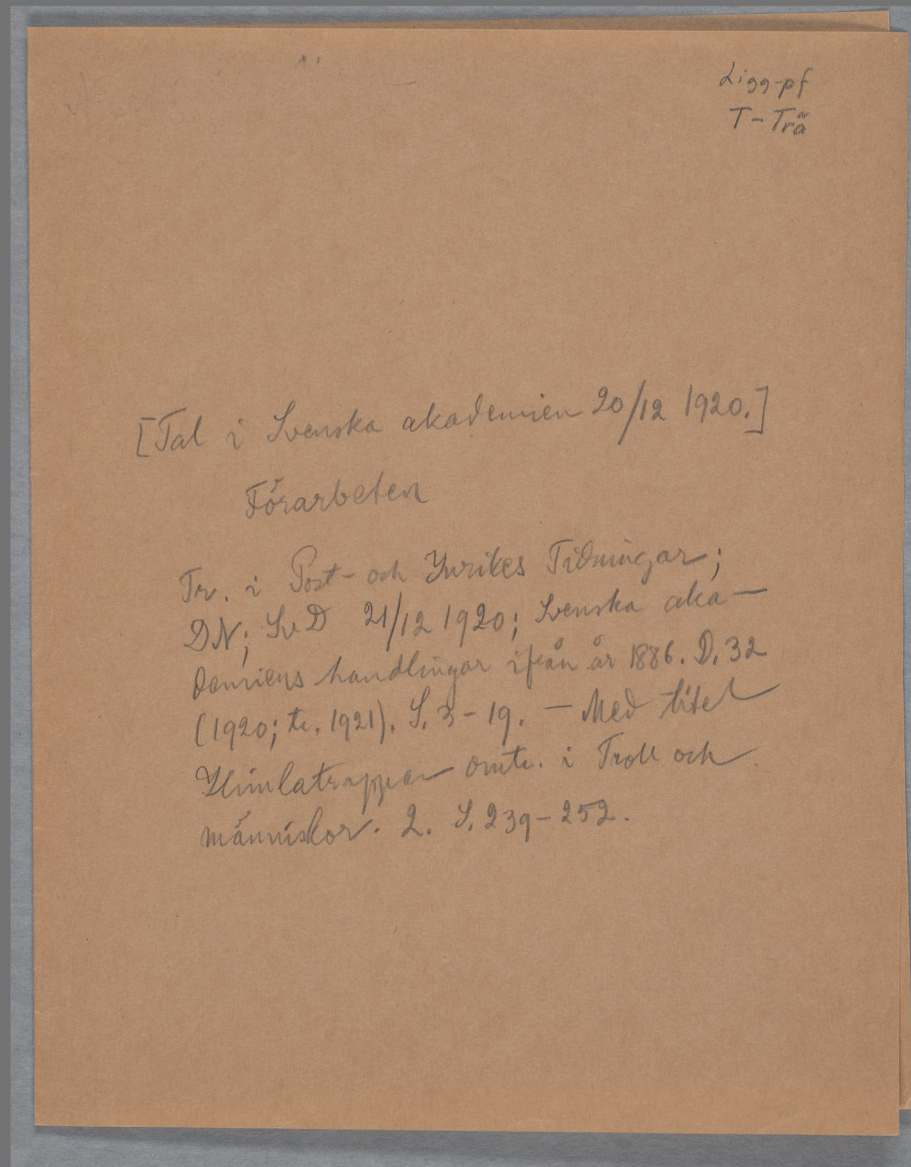 Ligg-pf
T-Trä
[Tal i Svenska akademien 20/12 1920.]
Förarbeten
Tr. i Post- och Inrikes Tidningar;
DN; SvD 21/12 1920; Svenska aka-
demiens handlingar ifrån år 1886. D. 32
(1920; tr. 1921). S. 3-19. - Med titel
Himlatrappan omtr. i Troll och
människor. 2. S. 239-252.